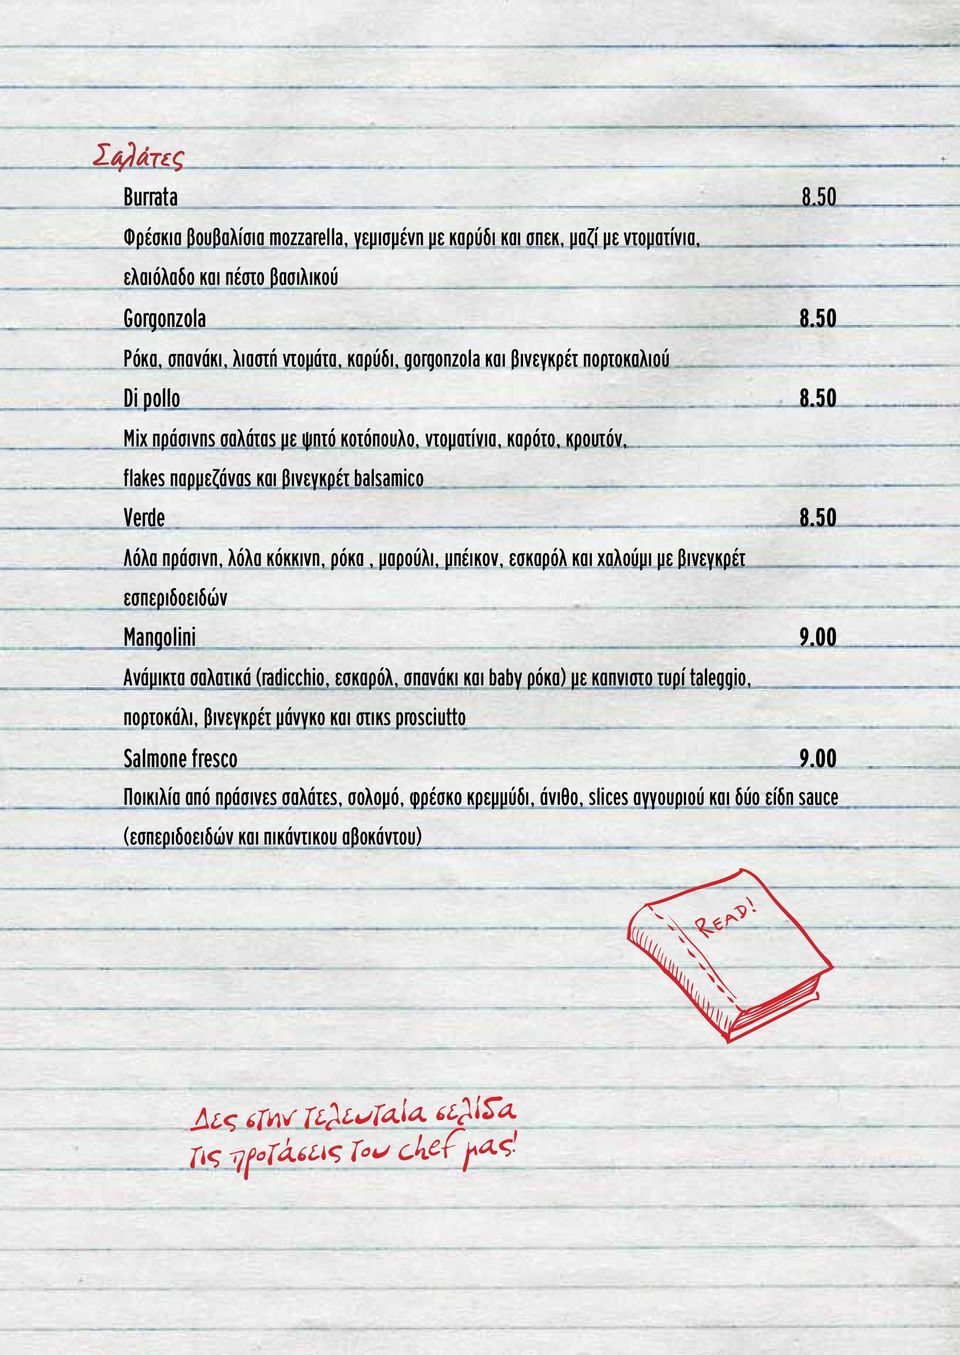 Σαλάτες
Burrata 8.50
Φρέσκια βουβαλίσια mozzarella, γεμισμένη με καρύδι και σπεκ, μαζί με ντοματίνια,
ελαιόλαδο και πέστο βασιλικού
Gorgonzola 8.50
Ρόκα, σπανάκι, λιαστή ντομάτα, καρύδι, gorgonzola και βινεγκρέτ πορτοκαλιού
Di pollo 8.50
Mix πράσινης σαλάτας με ψητό κοτόπουλο, ντοματίνια, καρότο, κρουτόν,
flakes παρμεζάνας και βινεγκρέτ balsamico
Verde 8.50
Λόλα πράσινη, λόλα κόκκινη, ρόκα , μαρούλι, μπέικον, εσκαρόλ και χαλούμι με βινεγκρέτ
εσπεριδοειδών
Mangolini 9.00
Ανάμικτα σαλατικά (radicchio, εσκαρόλ, σπανάκι και baby ρόκα) με καπνιστο τυρί taleggio,
πορτοκάλι, βινεγκρέτ μάνγκο και στικς prosciutto
Salmone fresco 9.00
Ποικιλία από πράσινες σαλάτες, σολομό, φρέσκο κρεμμύδι, άνιθο, slices αγγουριού και δύο είδη sauce
(εσπεριδοειδών και πικάντικου αβοκάντου)
READ!
Δες στην τελευταία σελίδα
τις προτάσεις του chef μας!